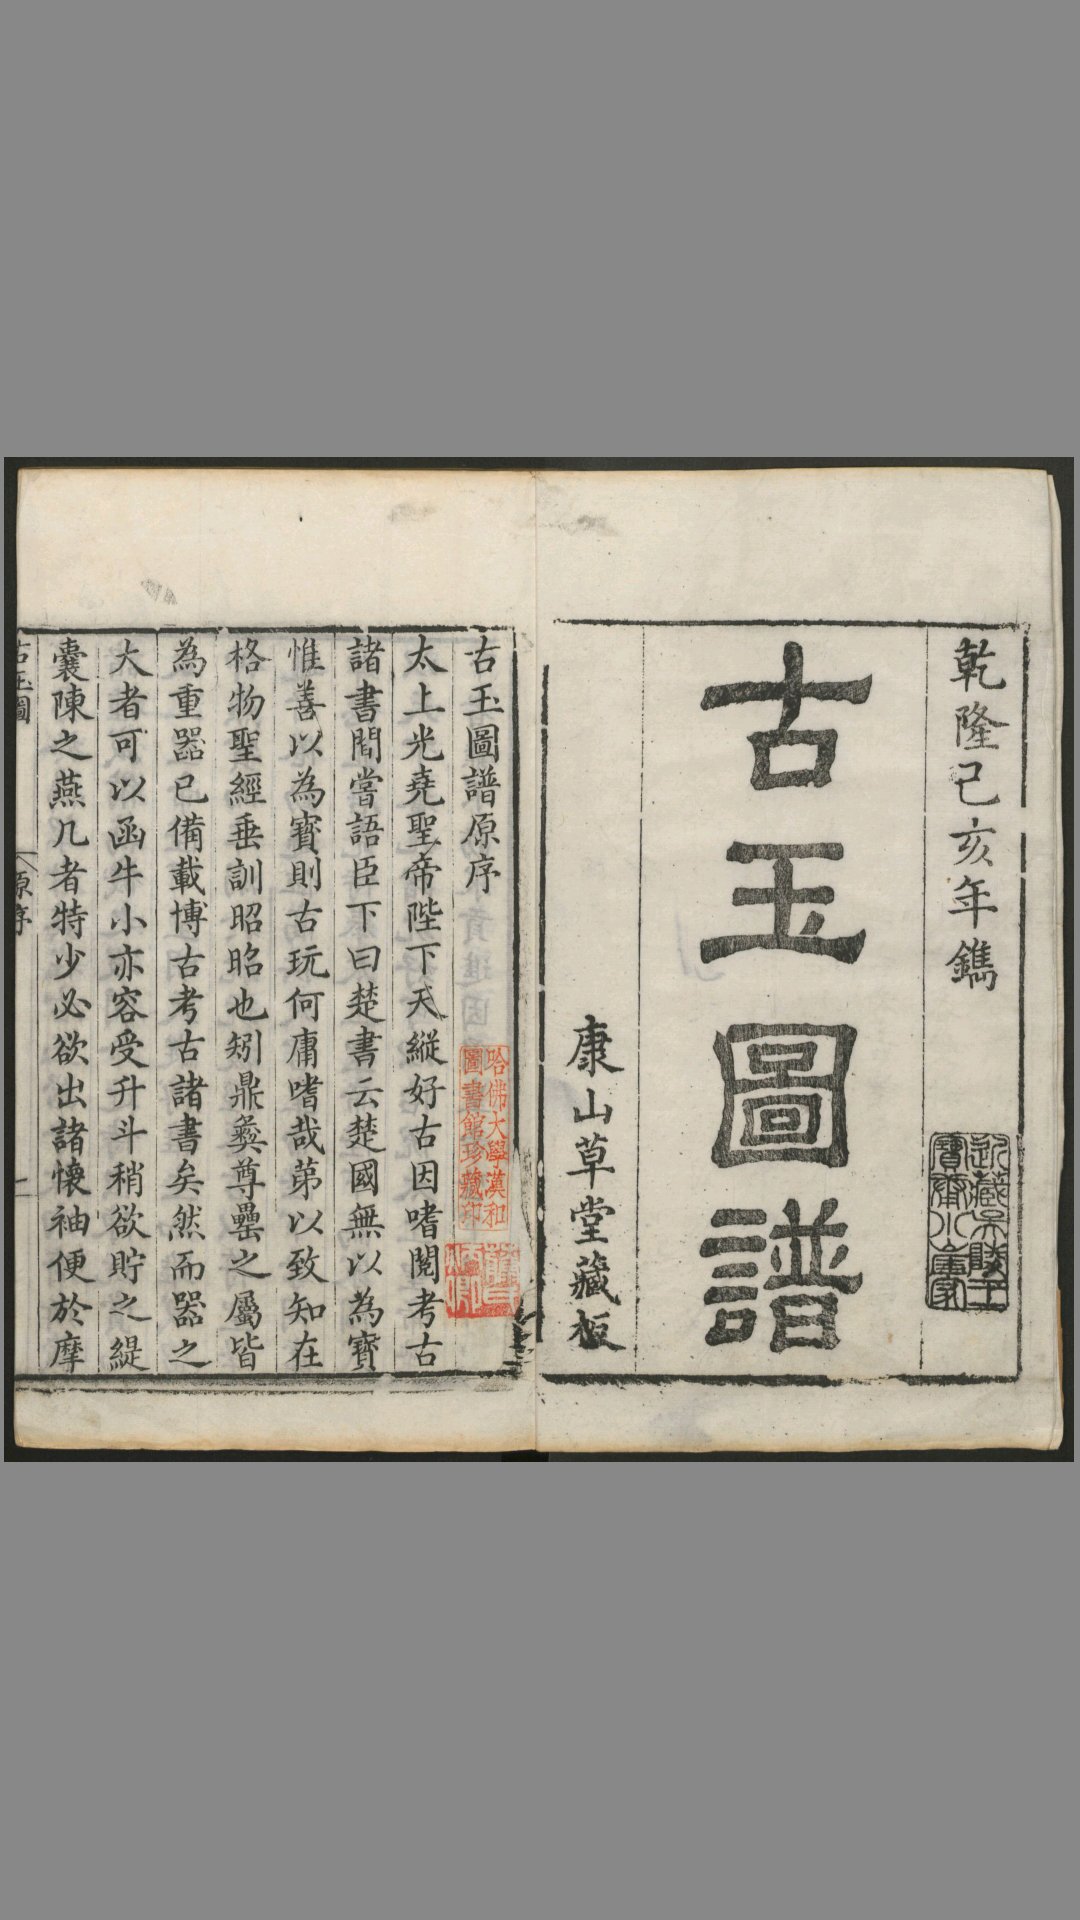 乾隆己亥年鐫
古玉圖譜
康山草堂藏板
古玉圖譜原序
太上光堯聖帝陛下天縱好古因嗜閱考古
諸書閒嘗語臣下曰楚書云楚國無以為寶
惟善以為寶則古玩何庸嗜哉第以致知在
格物聖經垂訓昭昭也矧鼎彝尊罍之屬皆
為重器已備載博古考古諸書矣然而器之
大者可以函牛小亦容受升斗稍欲貯之緹
囊陳之燕几者特少必欲出諸懷袖便於摩
古玉圖
原序
一
哈佛大學漢和
圖書館珍藏印